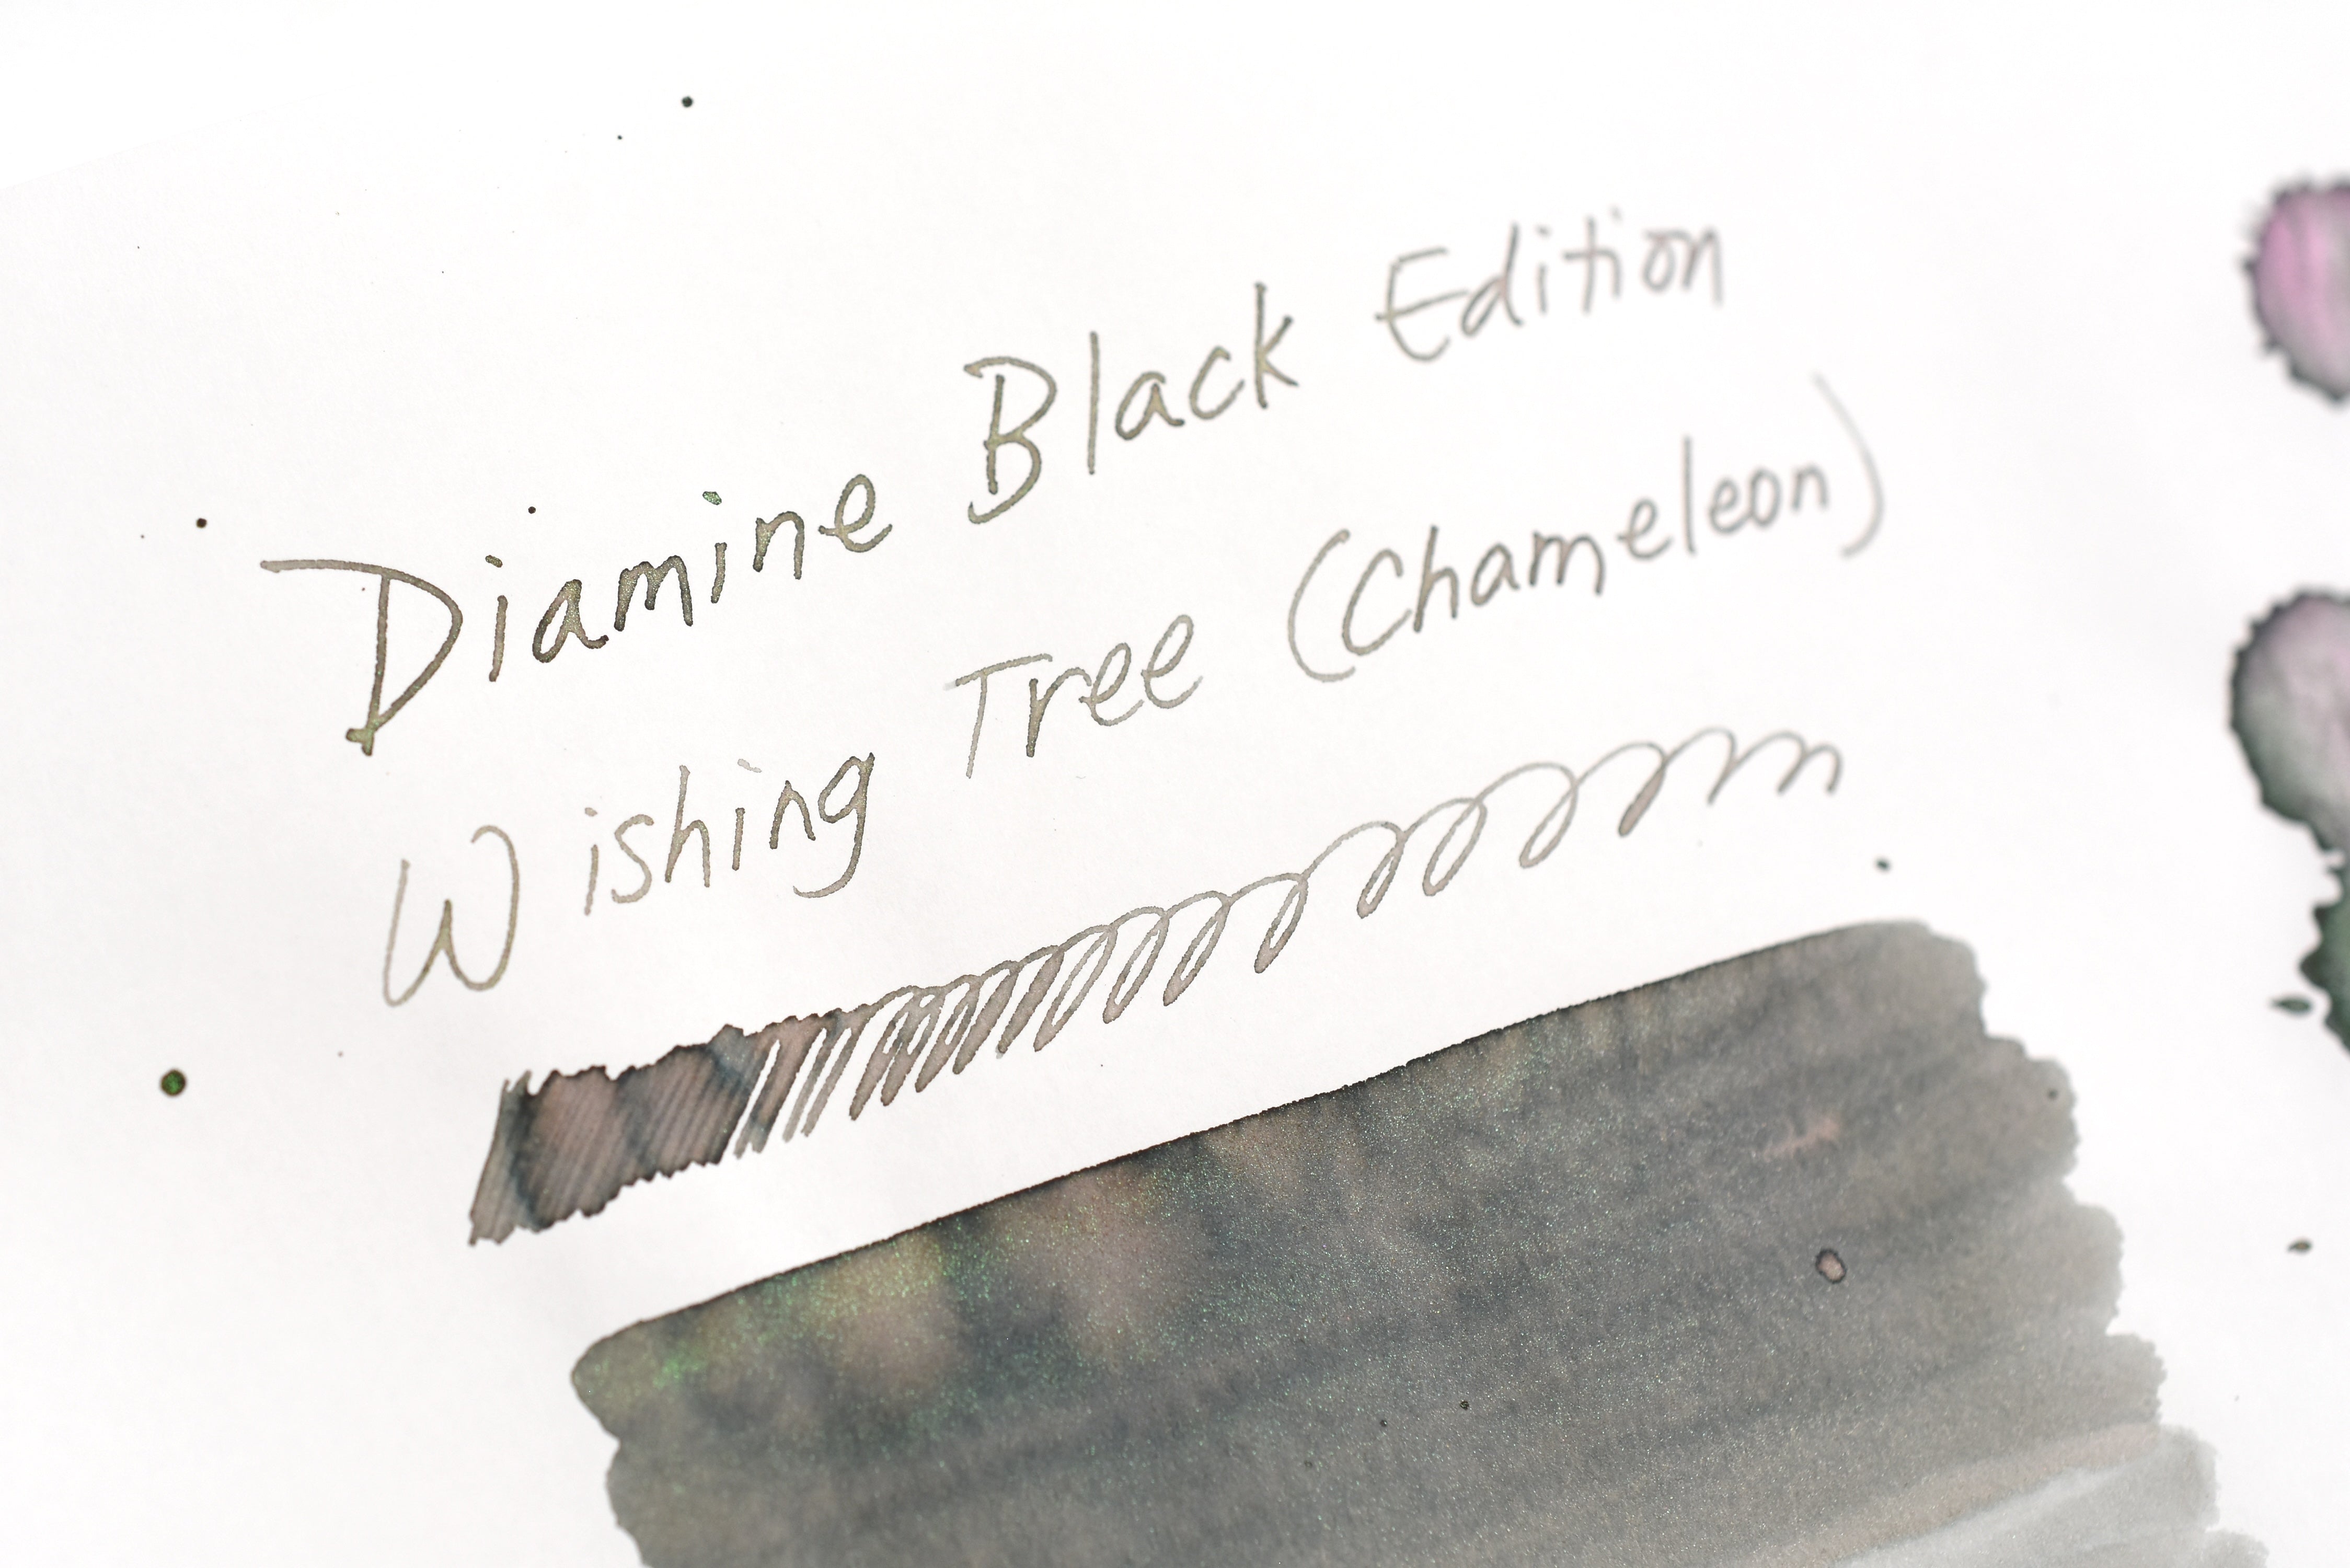 Diamine Black Edition
Wishing Tree (Chameleon)